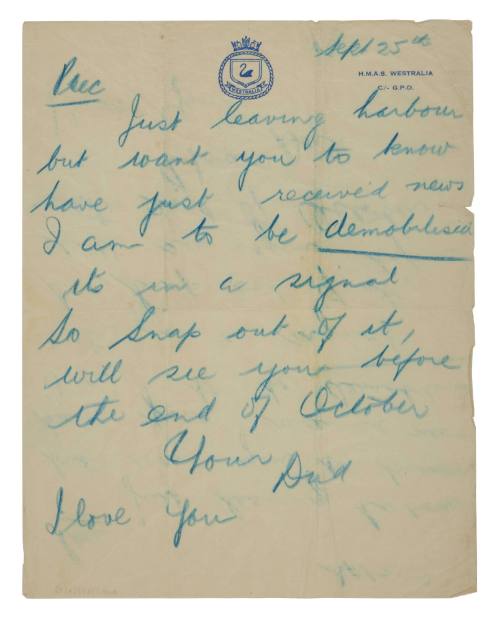 Sept 25th
WESTRALIA
H.M.A.S. WESTRALIA
C/- G.P.O.
Just leaving harbour
but want you to know
have just received news
I am to be demobilised
its in a signal
So Snap out of it,
will see you before
the end of October
Your Dad
I love You